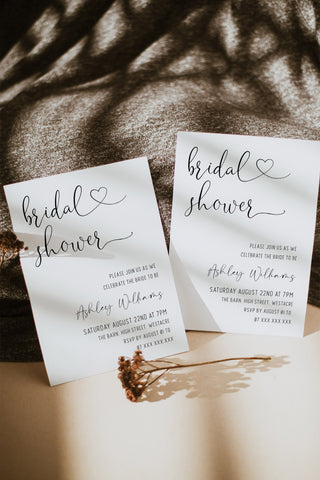 bridal
shower
PLEASE JOIN US AS WE
CELEBRATE THE BRIDE TO BE
Ashley Williams
SATURDAY AUGUST 22ND AT 7PM
THE BARN, HIGH STREET, WESTACRE
RSVP BY AUGUST 01 TO
07 XXX XXX XXX
bridal
shower
PLEASE JOIN US AS WE
CELEBRATE THE BRIDE TO BE
Ashley Williams
SATURDAY AUGUST 22ND AT 7PM
THE BARN, HIGH STREET, WESTACRE
RSVP BY AUGUST 01 TO
07 XXX XXX XXX